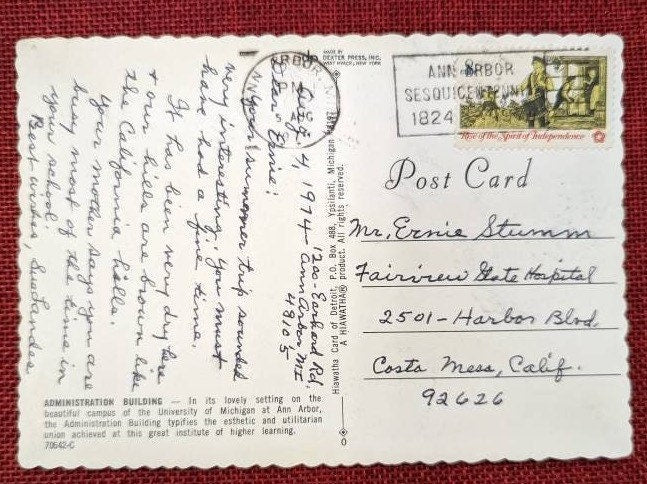 MADE BY
DEXTER PRESS, INC.
WEST NYACK, NEW YORK
ANN ARBOR
SESQUICENTENNI
1824
Rise of the Spirit of Independence
Post Card
Mr. Ernie Stumm
Fairview State Hospital
2501 - Harbor Blvd.
Costa Mesa, Calif.
92626
Aug. 4, 1974
1200 - Earhard Rd.
Ann Arbor MI
48105
Dear Ernie:
Your summer trip sounded
very interesting. You must
have had a fine time.
It has been very dry here
+ our hills are brown like
the California hills.
Your mother says you are
busy most of the time in
your school.
Best wishes,
Hiawatha Card of Detroit, P.O. Box 488, Ypsilanti, Michigan
A HIAWATHA® product. All rights reserved.
ADMINISTRATION BUILDING — In its lovely setting on the
beautiful campus of the University of Michigan at Ann Arbor,
the Administration Building typifies the esthetic and utilitarian
union achieved at this great institute of higher learning.
70642-C